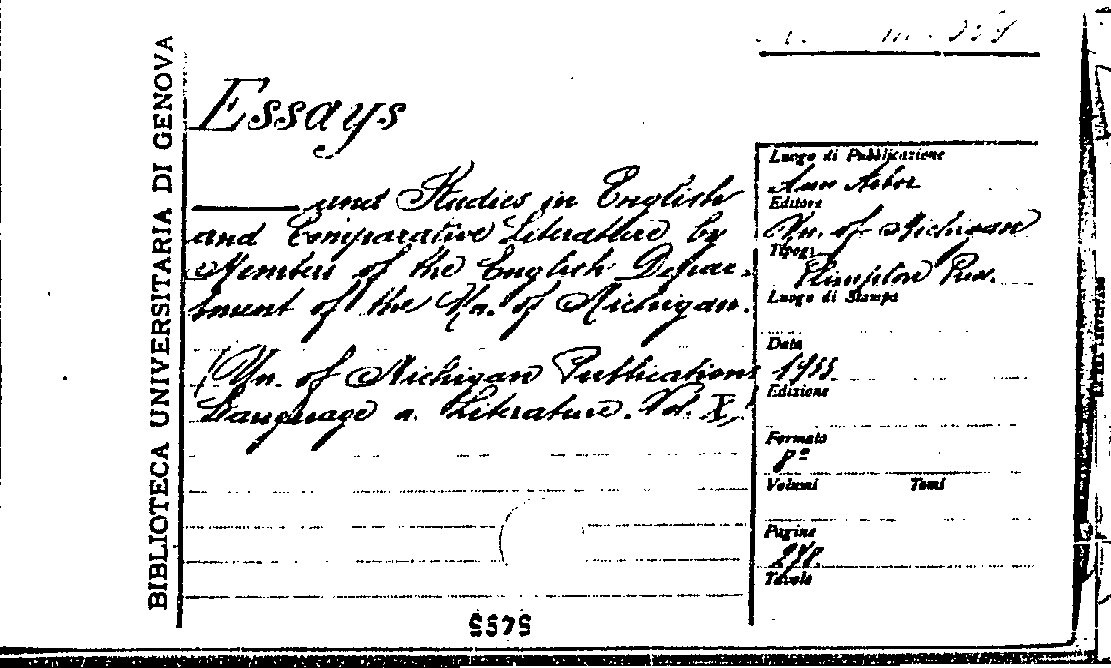 BIBLIOTECA UNIVERSITARIA DI GENOVA
Essays
and Studies in English
and Comparative Literature by
Members of the English Depar-
tment of the Un. of Michigan.
(Un. of Michigan Publications
Language a. Literature. Vol. X,)
Luogo di Pubblicazione
Ann Arbor
Editore
Un. of Michigan
Tipogr.
Plimpton Press.
Luogo di Stampa
Data
1933.
Edizione
Formato
8º
Volumi Tomi
Pagine
270.
Tavole
5575